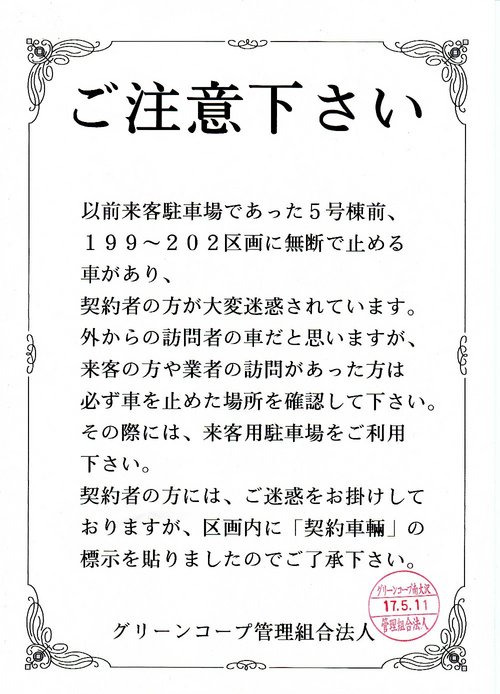 ご注意下さい
以前来客駐車場であった５号棟前、
１９９～２０２区画に無断で止める
車があり、
契約者の方が大変迷惑されています。
外からの訪問者の車だと思いますが、
来客の方や業者の訪問があった方は
必ず車を止めた場所を確認して下さい。
その際には、来客用駐車場をご利用
下さい。
契約者の方には、ご迷惑をお掛けして
おりますが、区画内に「契約車輛」の
標示を貼りましたのでご了承下さい。
グリーンコープ南大沢
17.5.11
管理組合法人
グリーンコープ管理組合法人